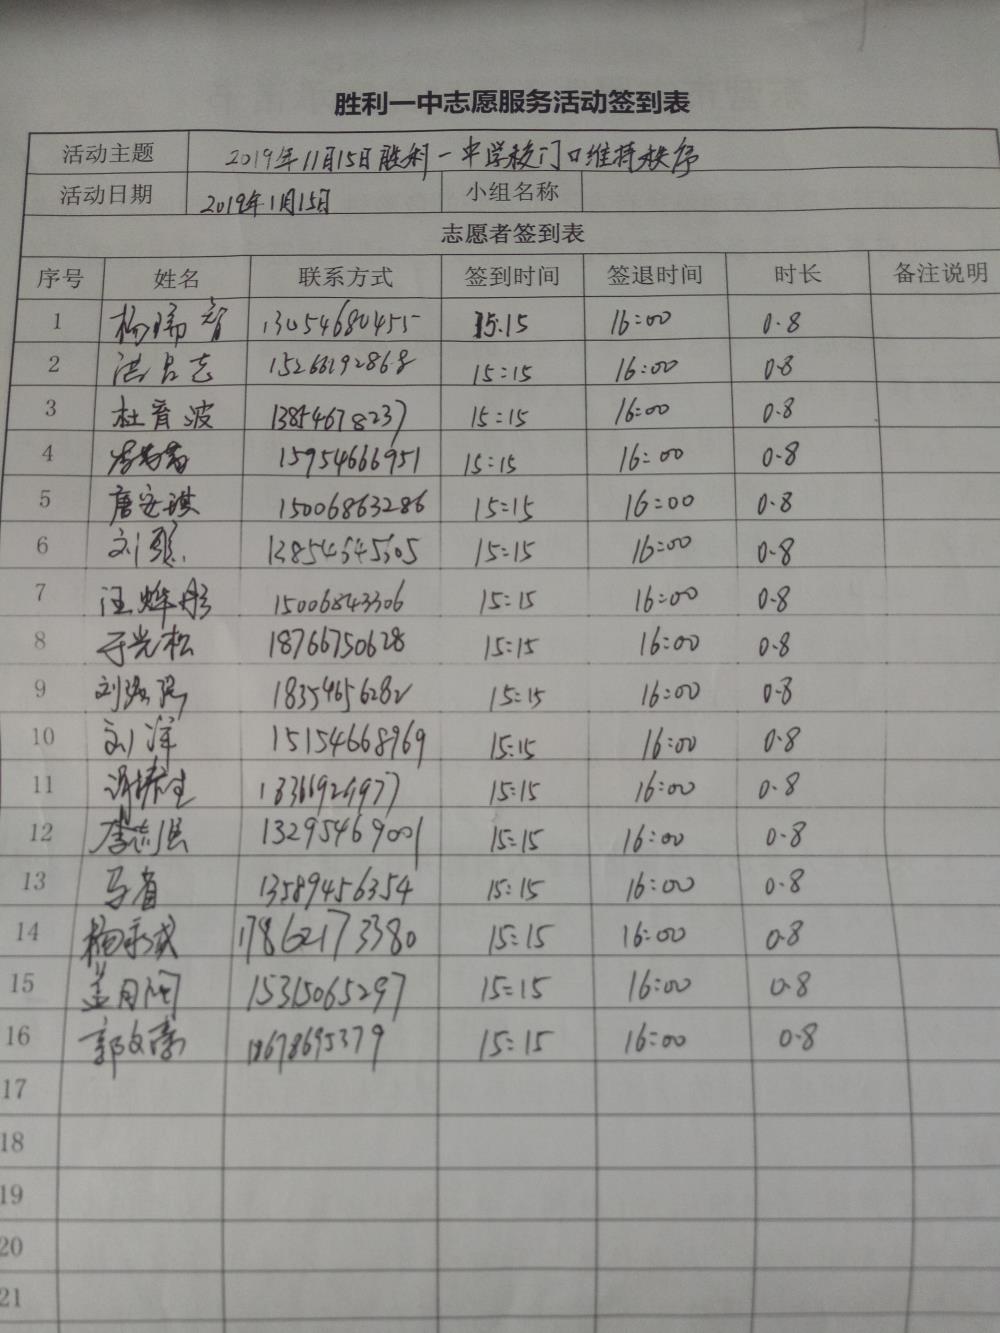 胜利一中志愿服务活动签到表
活动主题 2019年11月15日胜利一中学校门口维持秩序
活动日期 2019年1月15日 小组名称
志愿者签到表
序号 姓名 联系方式 签到时间 签退时间 时长 备注说明
1 13054680455 15:15 16:00 0.8
2 15266192868 15:15 16:00 0.8
3 杜育波 13854678237 15:15 16:00 0.8
4 15954666951 15:15 16:00 0.8
5 唐安琪 15006863286 15:15 16:00 0.8
6 刘 13854645605 15:15 16:00 0.8
7 汪 15006843306 15:15 16:00 0.8
8 于光松 18766750628 15:15 16:00 0.8
9 刘 18354656282 15:15 16:00 0.8
10 刘洋 15154668969 15:15 16:00 0.8
11 15:15 16:00 0.8
12 李志 13295469001 15:15 16:00 0.8
13 马省 13589456354 15:15 16:00 0.8
14 杨 17862173380 15:15 16:00 0.8
15 盖 15315065297 15:15 16:00 0.8
16 郭文 18678695379 15:15 16:00 0.8
17
18
19
20
21